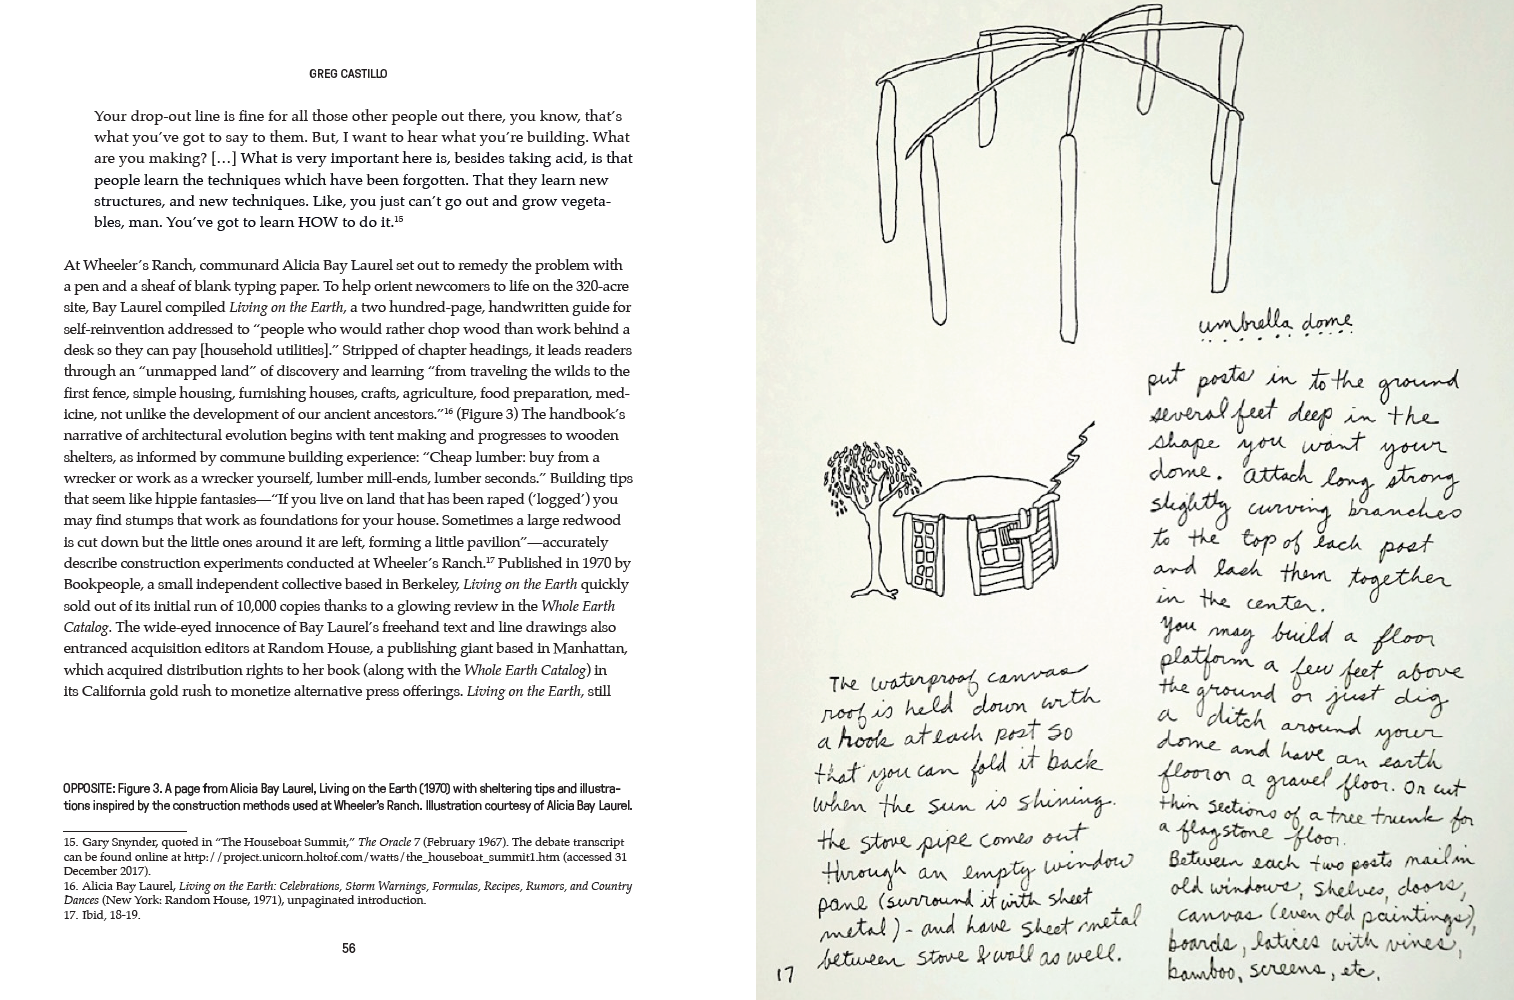 GREG CASTILLO
Your drop-out line is fine for all those other people out there, you know, that’s
what you’ve got to say to them. But, I want to hear what you’re building. What
are you making? […] What is very important here is, besides taking acid, is that
people learn the techniques which have been forgotten. That they learn new
structures, and new techniques. Like, you just can’t go out and grow vegeta-
bles, man. You’ve got to learn HOW to do it.15
At Wheeler’s Ranch, communard Alicia Bay Laurel set out to remedy the problem with
a pen and a sheaf of blank typing paper. To help orient newcomers to life on the 320-acre
site, Bay Laurel compiled Living on the Earth, a two hundred-page, handwritten guide for
self-reinvention addressed to “people who would rather chop wood than work behind a
desk so they can pay [household utilities].” Stripped of chapter headings, it leads readers
through an “unmapped land” of discovery and learning “from traveling the wilds to the
first fence, simple housing, furnishing houses, crafts, agriculture, food preparation, med-
icine, not unlike the development of our ancient ancestors.”16 (Figure 3) The handbook’s
narrative of architectural evolution begins with tent making and progresses to wooden
shelters, as informed by commune building experience: “Cheap lumber: buy from a
wrecker or work as a wrecker yourself, lumber mill-ends, lumber seconds.” Building tips
that seem like hippie fantasies—“If you live on land that has been raped (‘logged’) you
may find stumps that work as foundations for your house. Sometimes a large redwood
is cut down but the little ones around it are left, forming a little pavilion”—accurately
describe construction experiments conducted at Wheeler’s Ranch.17 Published in 1970 by
Bookpeople, a small independent collective based in Berkeley, Living on the Earth quickly
sold out of its initial run of 10,000 copies thanks to a glowing review in the Whole Earth
Catalog. The wide-eyed innocence of Bay Laurel’s freehand text and line drawings also
entranced acquisition editors at Random House, a publishing giant based in Manhattan,
which acquired distribution rights to her book (along with the Whole Earth Catalog) in
its California gold rush to monetize alternative press offerings. Living on the Earth, still
OPPOSITE: Figure 3. A page from Alicia Bay Laurel, Living on the Earth (1970) with sheltering tips and illustra-
tions inspired by the construction methods used at Wheeler’s Ranch. Illustration courtesy of Alicia Bay Laurel.
15. Gary Snynder, quoted in “The Houseboat Summit,” The Oracle 7 (February 1967). The debate transcript
can be found online at http://project.unicorn.holtof.com/watts/the_houseboat_summit1.htm (accessed 31
December 2017).
16. Alicia Bay Laurel, Living on the Earth: Celebrations, Storm Warnings, Formulas, Recipes, Rumors, and Country
Dances (New York: Random House, 1971), unpaginated introduction.
17. Ibid, 18-19.
56
umbrella dome
put posts in to the ground
several feet deep in the
shape you want your
dome. Attach long strong
slightly curving branches
to the top of each post
and lash them together
in the center.
You may build a floor
platform a few feet above
the ground or just dig
a ditch around your
dome and have an earth
floor or a gravel floor. Or cut
thin sections of a tree trunk for
a flagstone floor.
Between each two posts nail in
old windows, shelves, doors,
canvas (even old paintings),
boards, latices with vines,
bamboo, screens, etc.
The waterproof canvas
roof is held down with
a hook at each post so
that you can fold it back
when the sun is shining.
the stove pipe comes out
through an empty window
pane (surround it with sheet
metal) - and have sheet metal
between stove & wall as well.
17